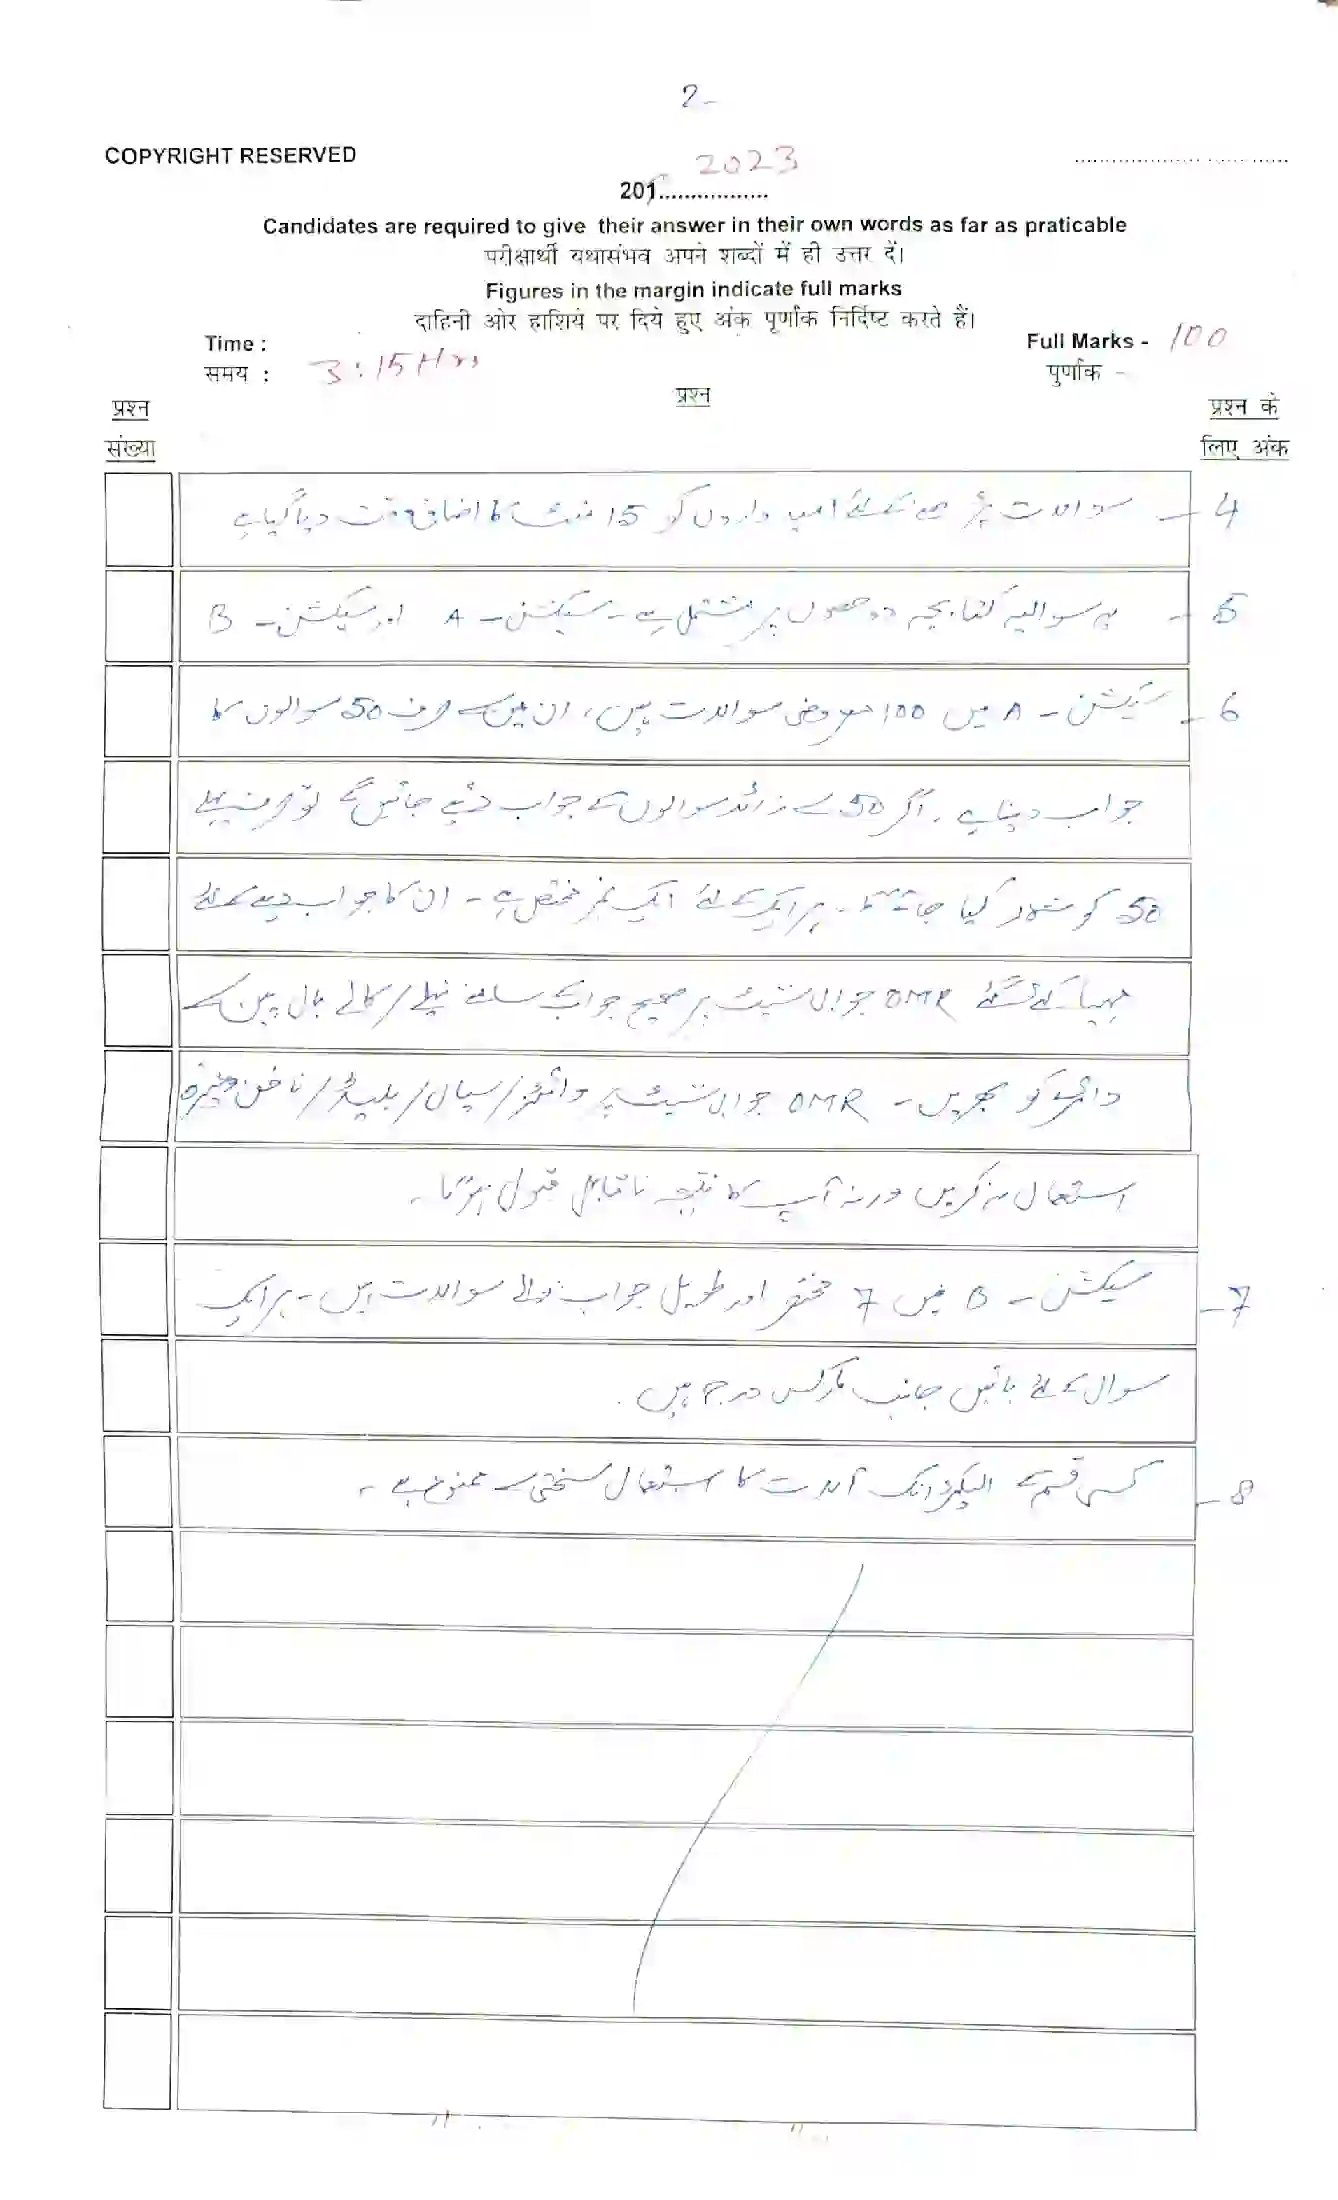 2-
COPYRIGHT RESERVED
2023
201.................
Candidates are required to give their answer in their own words as far as praticable
परीक्षार्थी यथासंभव अपने शब्दों में ही उत्तर दें।
Figures in the margin indicate full marks
दाहिनी ओर हाशिये पर दिये हुए अंक पूर्णांक निर्दिष्ट करते हैं।
Time : 3:15 Hrs
समय :
Full Marks - 100
पुर्णांक -
प्रश्न संख्या
प्रश्न
प्रश्न के लिए अंक
4- سوالات پڑھنے کے لئے امیدواروں کو 15 منٹ کا اضافی وقت دیا گیا ہے
5- یہ سوالیہ کتابچہ دو حصوں پر مشتمل ہے - سیکشن - A اور سیکشن - B
6- سیکشن - A میں 100 معروضی سوالات ہیں، ان میں سے صرف 50 سوالوں کا
جواب دینا ہے۔ اگر 50 سے زائد سوالوں کے جواب دئیے جائیں گے تو صرف پہلے
50 کو شمار کیا جائے گا۔ ہر ایک کے لئے ایک نمبر مختص ہے - ان کا جواب دینے کے لئے
مہیا کئے گئے OMR جوابی شیٹ پر صحیح جواب کے سامنے نیلے/کالے بال پین سے
دائرے کو بھریں - OMR جوابی شیٹ پر وائٹنر/سیال/بلیڈ/ناخن وغیرہ
استعمال نہ کریں ورنہ آپ کا نتیجہ ناقابل قبول ہوگا۔
7- سیکشن - B میں 7 مختصر اور طویل جواب والے سوالات ہیں - ہر ایک
سوال کے لئے بائیں جانب مارکس درج ہیں۔
8- کسی قسم کے الیکٹرانک آلات کا استعمال سختی سے ممنوع ہے۔